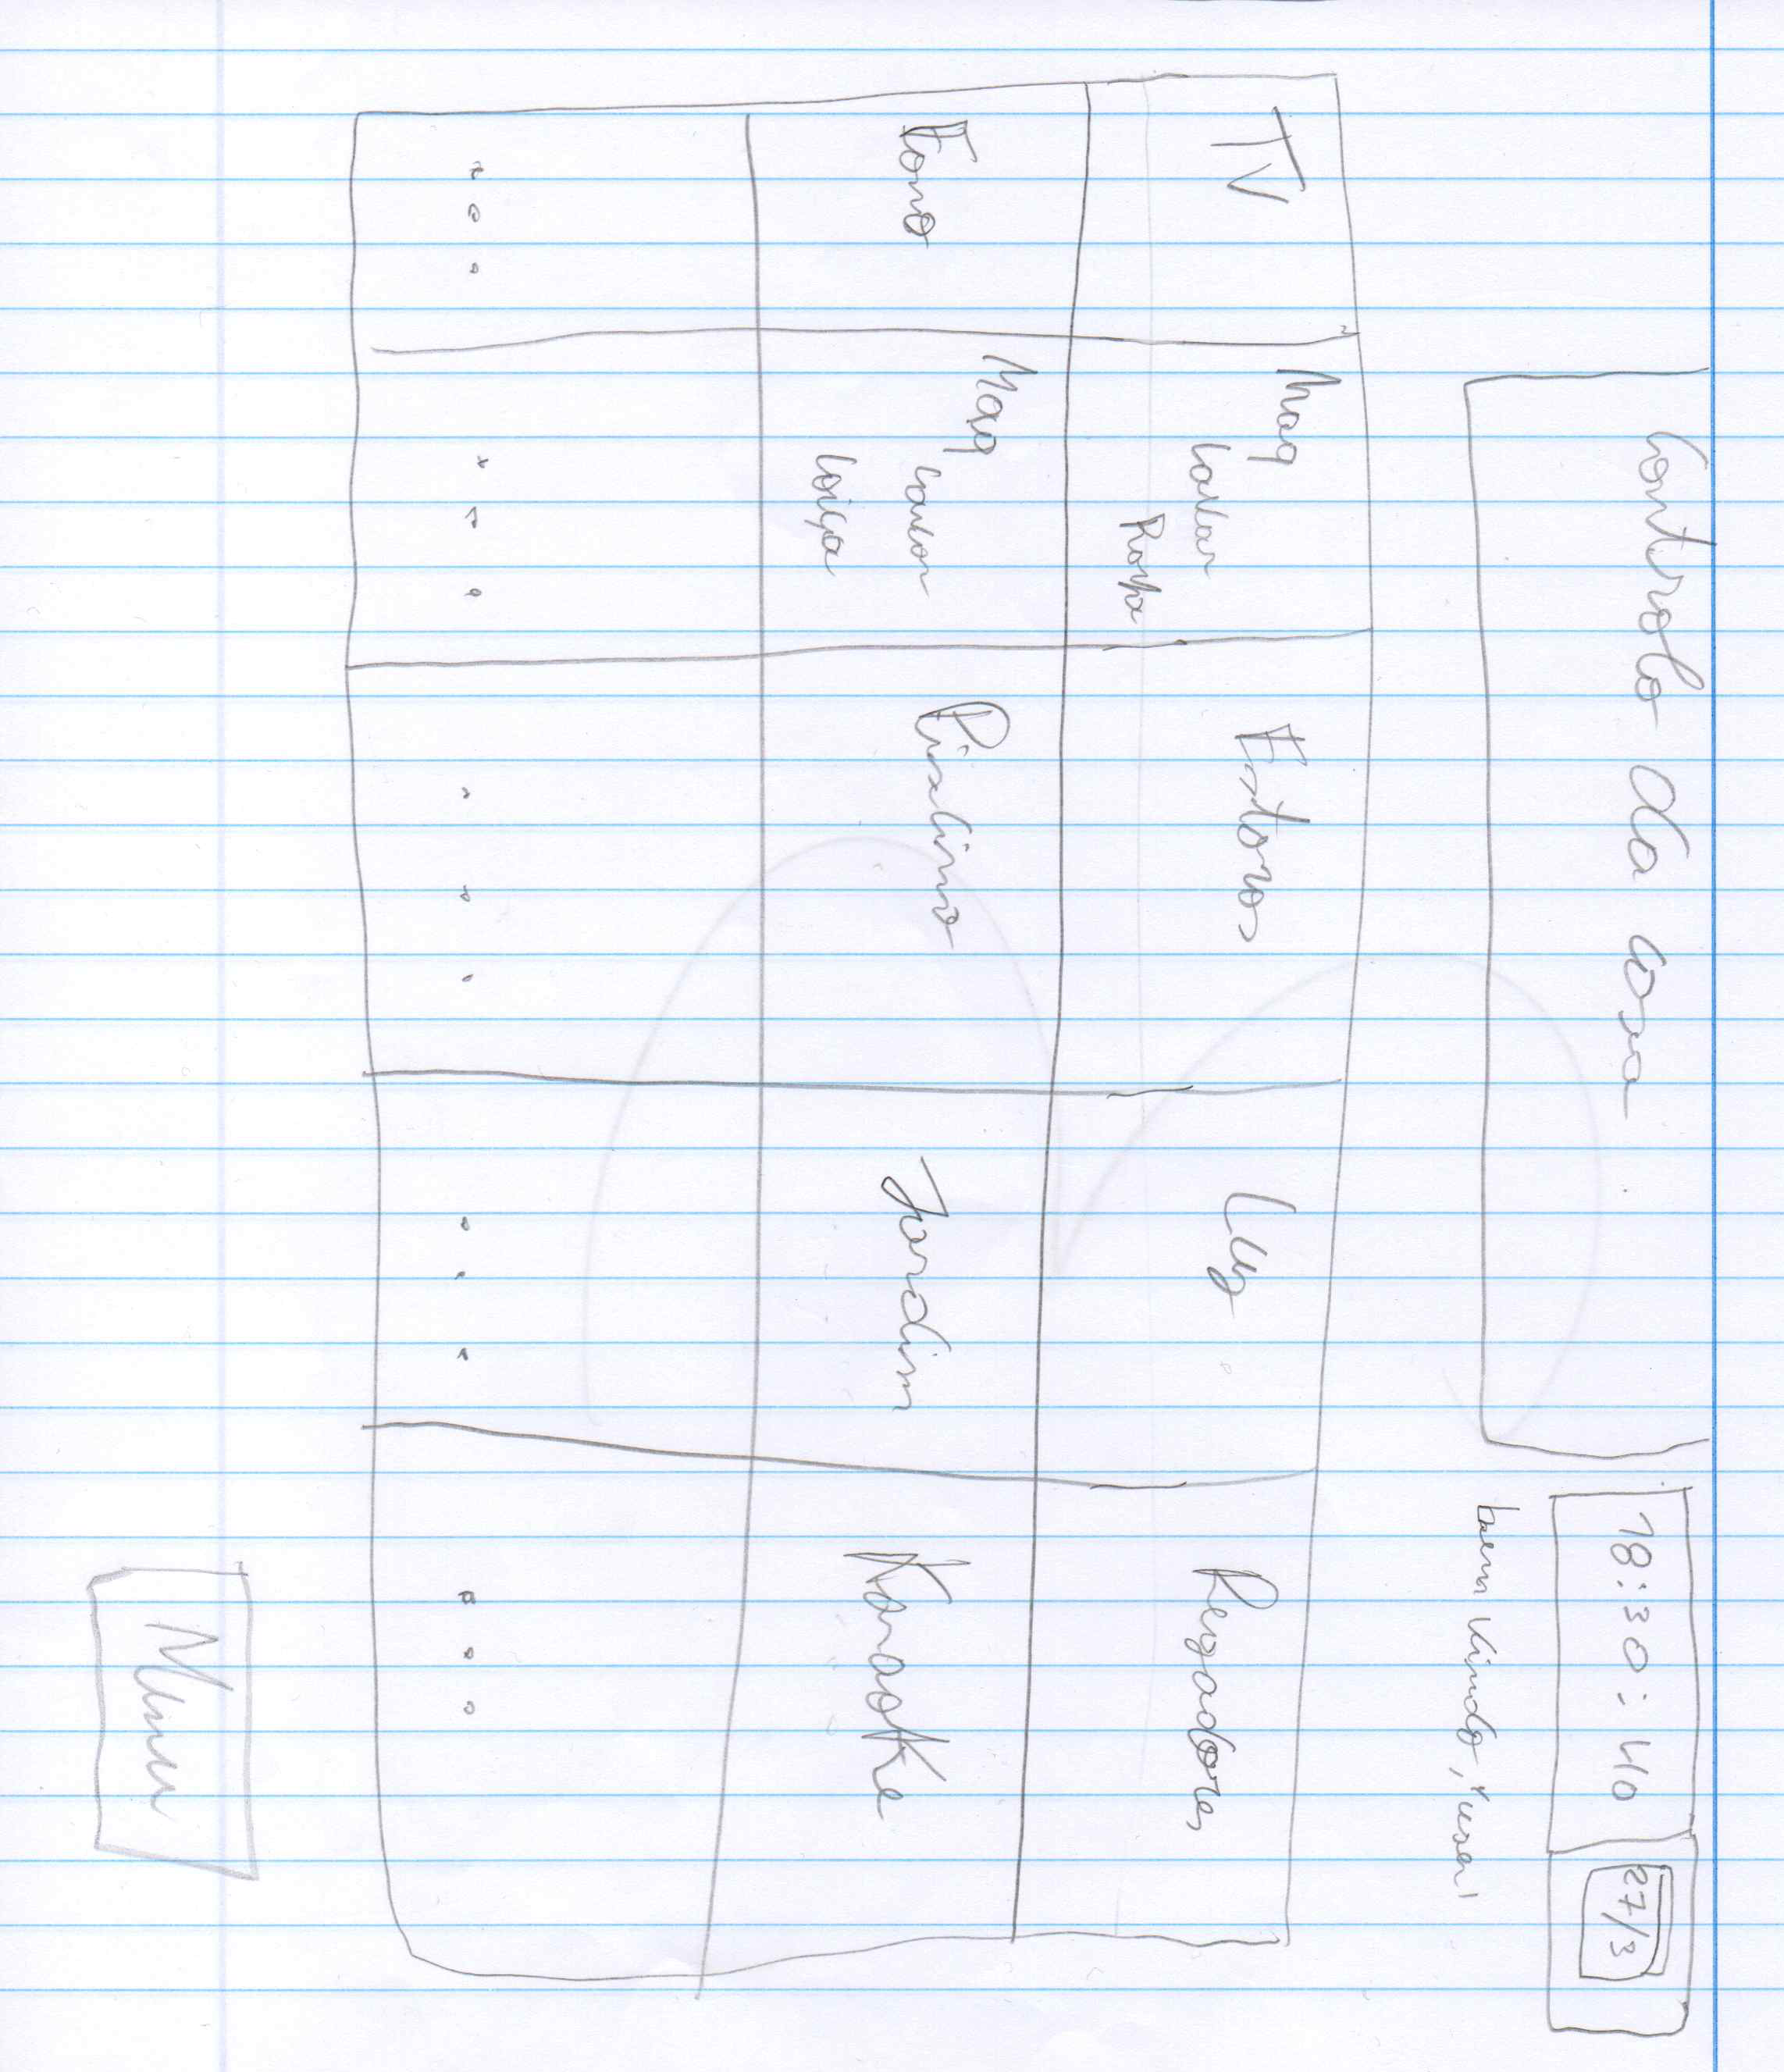 Controlo da casa
18:30:40
27/3
bem vindo, "user"
TV
Maq
Lavar
Roupa
Estores
Luz
Regadores
Forno
Maq
Lavar
Loiça
Piscina
Jardim
Karaoke
...
...
...
...
...
Menu